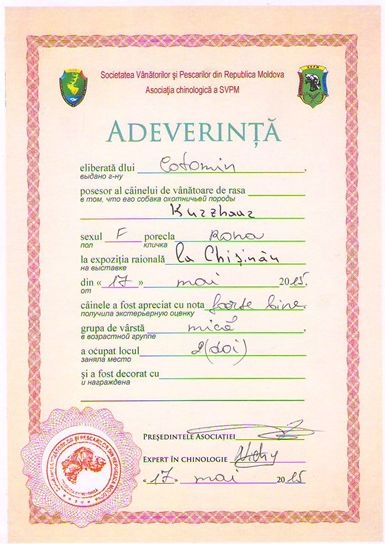 Societatea Vânătorilor și Pescarilor din Republica Moldova
Asociația chinologică a SVPM
ADEVERINȚĂ
eliberată dlui Cotomin,
выдано г-ну
posesor al câinelui de vânătoare de rasa
в том, что его собака охотничьей породы
Kurzhaar
sexul F porecla Rona
пол кличка
la expoziția raională la Chișinău
на выставке
din « 17 » mai 2015.
от
câinele a fost apreciat cu nota foarte bine,
получила экстерьерную оценку
grupa de vârstă mică
в возрастной группе
a ocupat locul 2 (doi)
заняла место
și a fost decorat cu
и награждена
PREȘEDINTELE ASOCIAȚIEI
EXPERT ÎN CHINOLOGIE
« 17 » mai 2015